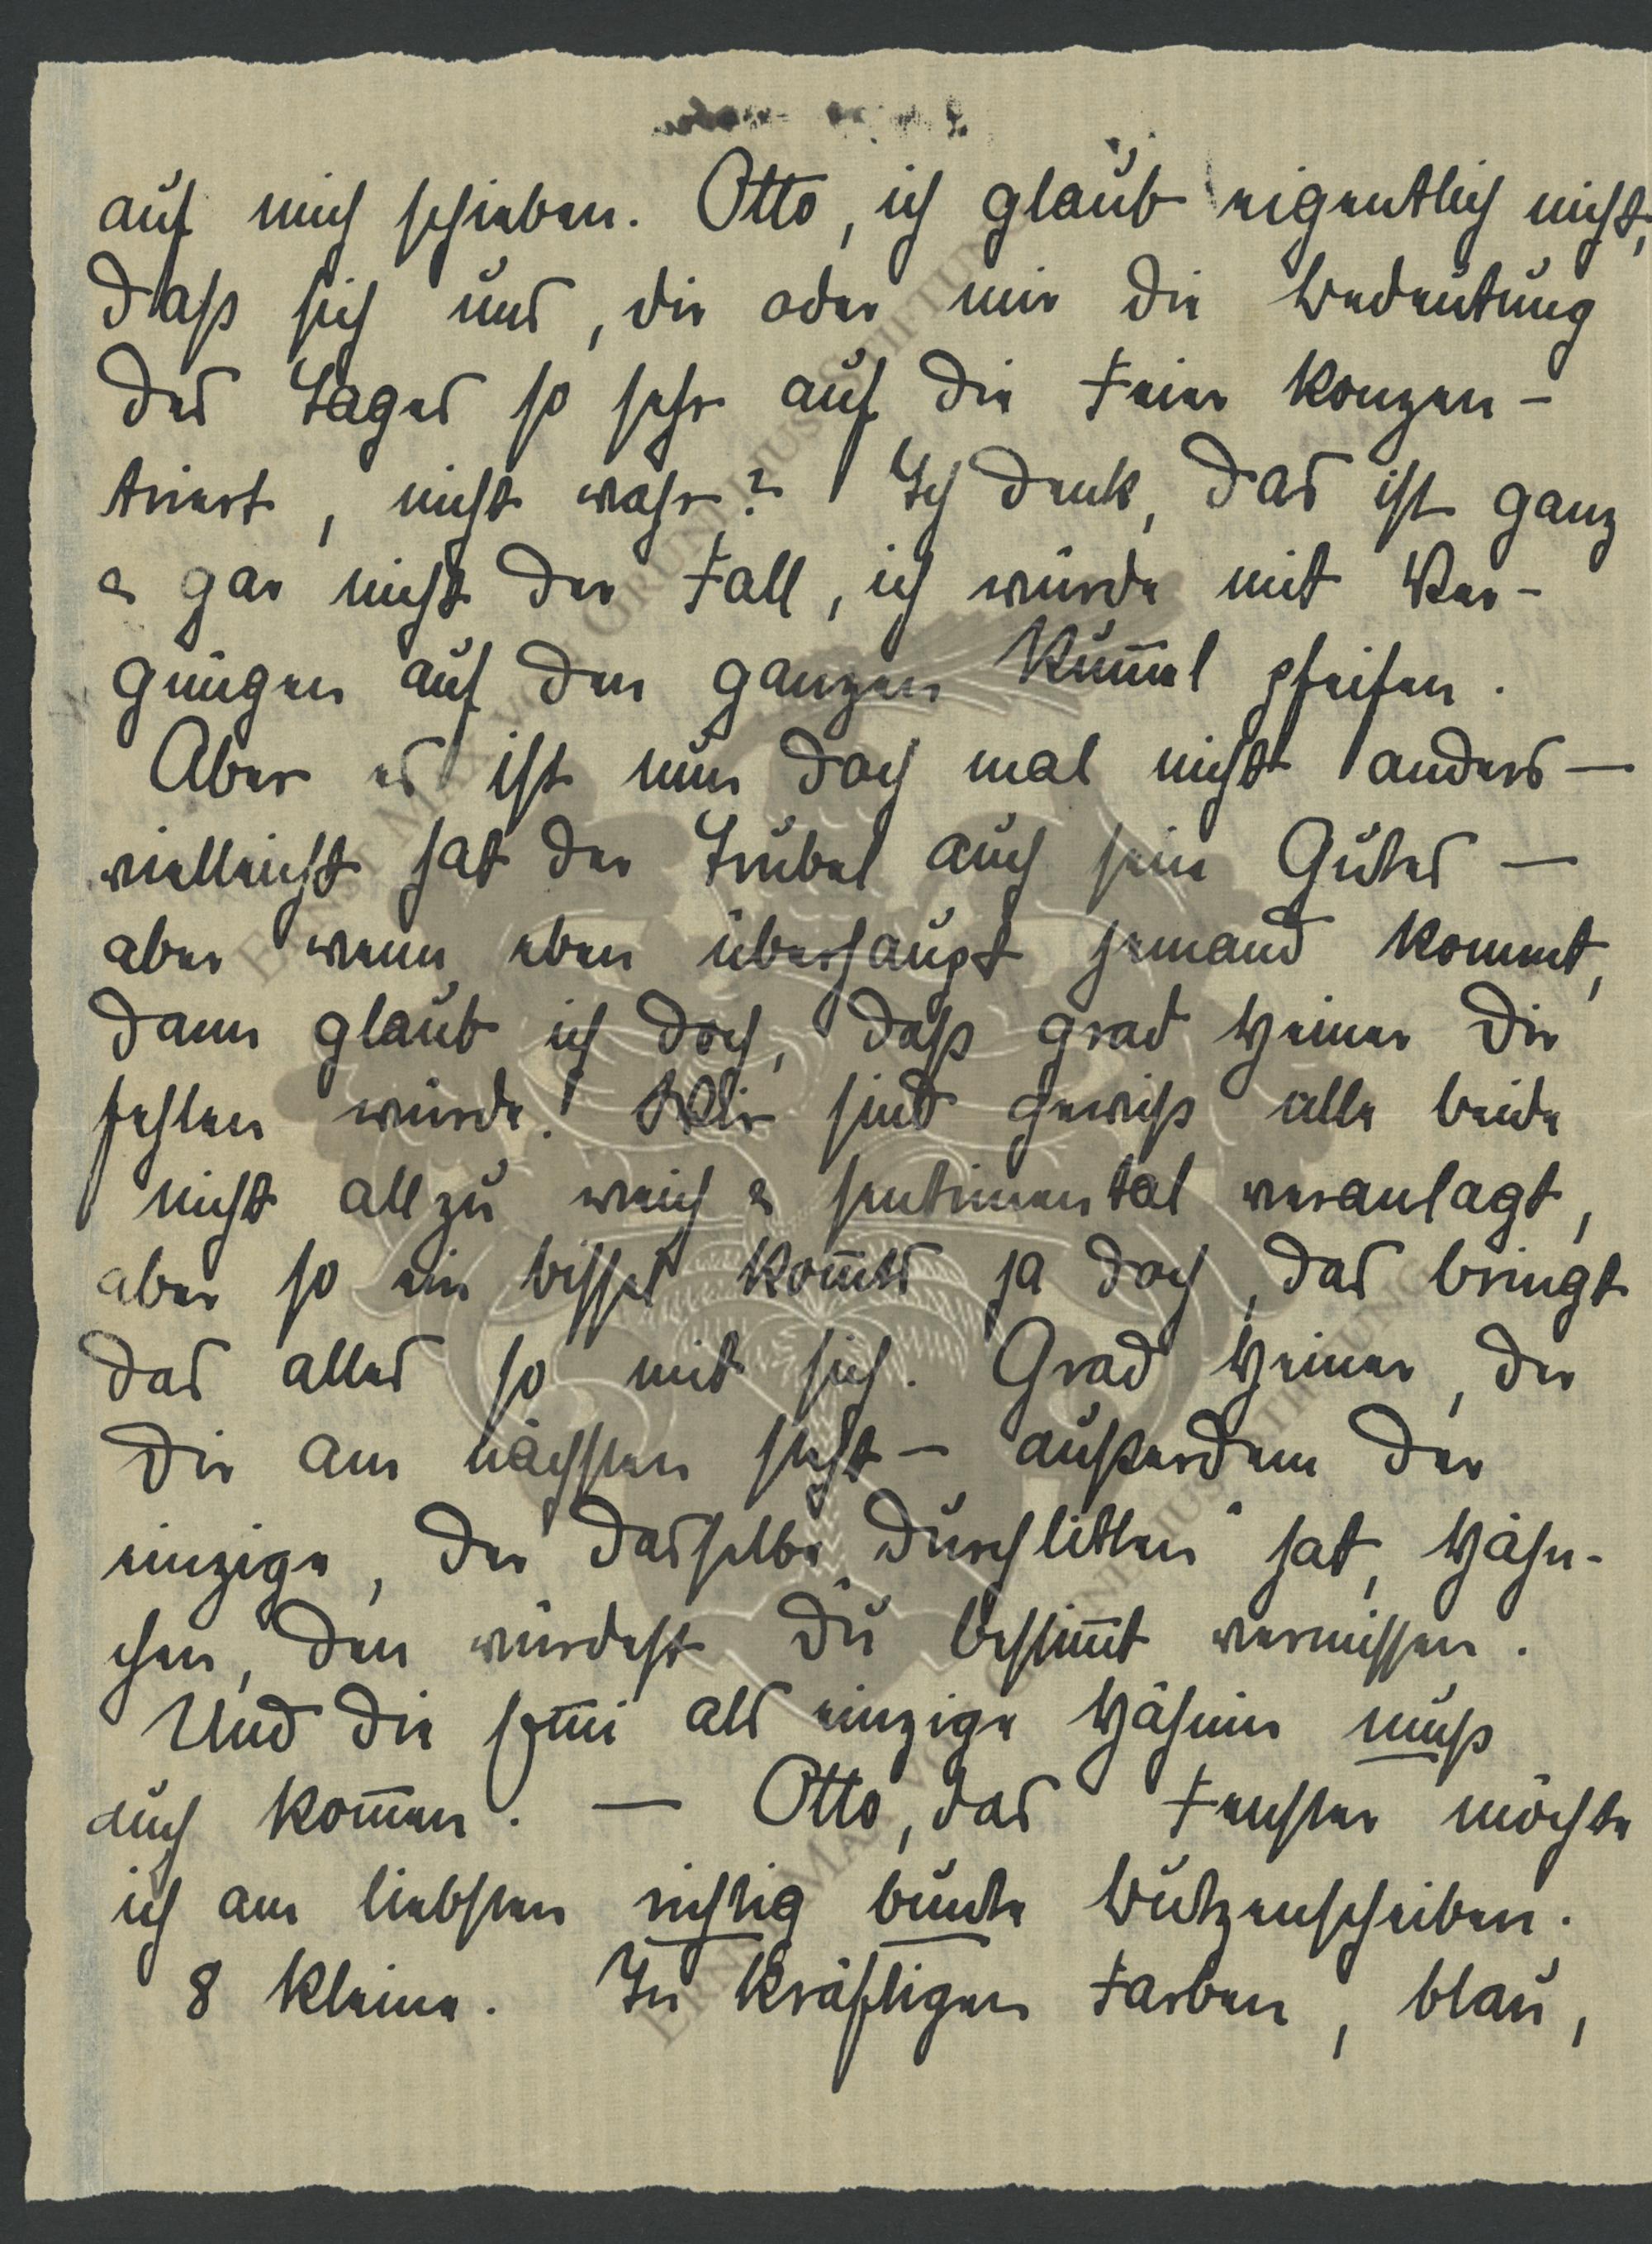 auf mich schieben. Otto, ich glaub eigentlich nicht,
daß sich uns, dir oder mir die Bedeutung
des Tages so sehr auf die Feier konzen-
triert, nicht wahr? Ich denk, das ist ganz
& gar nicht der Fall, ich würde mit Ver-
gnügen auf den ganzen Kum̅el pfeifen.
Aber es ist nun doch mal nicht anders —
vielleicht hat der Trubel auch sein Gutes —
aber wenn eben überhaupt jemand kommt,
dann glaub ich doch, daß grad Heiner Dir
fehlen würde! Wir sind gewiß alle beide
nicht allzu weich & sentimental veranlagt,
aber so ein bissel kom̅ts ja doch, das bringt
das alles so mit sich. Grad Heiner, der
Dir am nächsten steht — außerdem der
einzige, der dasselbe "durchlitten" hat, Hähn-
chen, den würdest Du bestim̅t vermissen.
Und die als einzige Hähnin muß
auch kom̅en. — Otto, das Fenster möchte
ich am liebsten richtig bunte Butzenscheiben.
8 kleine. In kräftigen Farben, blau,
ERNST MAX VON GRUNELIUS STIFTUNG
ERNST MAX VON GRUNELIUS STIFTUNG